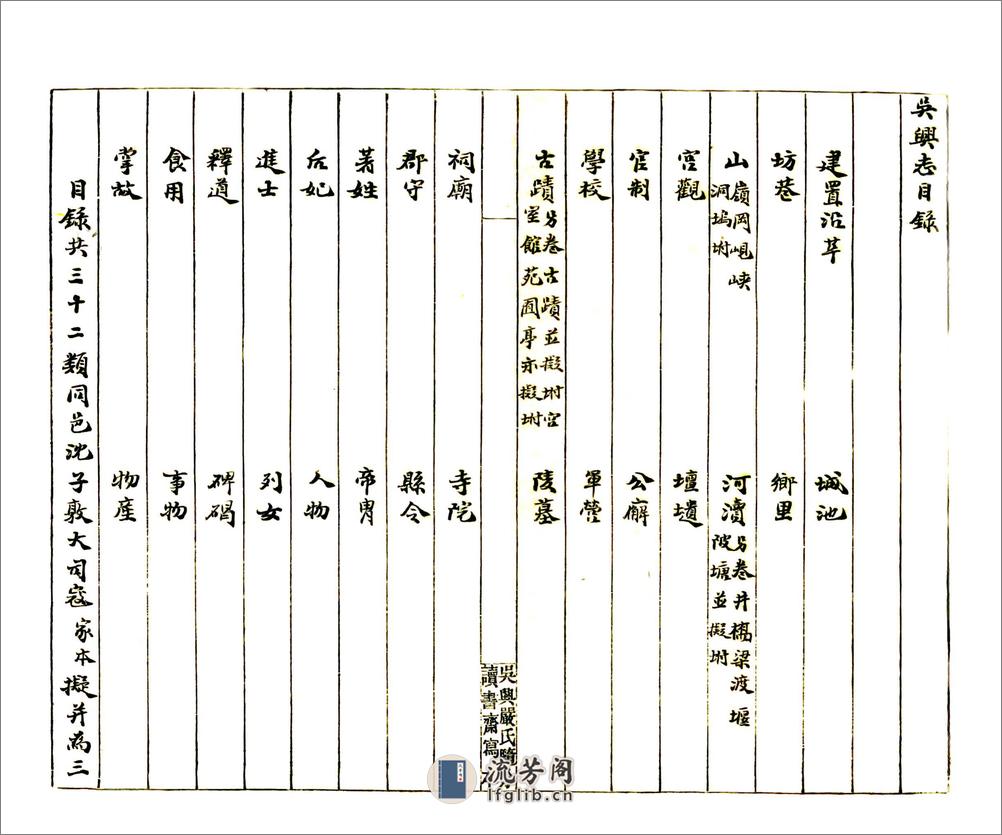 吳興志目錄
建置沿革 城池
坊巷 鄉里
山嶺岡峴峽洞塢坿 河瀆另卷井橋梁渡堰陂塘並擬坿
宮觀 壇壝
官制 公廨
學校 軍營
古蹟另卷古蹟並擬坿宮室館苑圃亭亦擬坿 陵墓
吳興嚴氏隨
讀書齋寫
祠廟 寺院
郡守 縣令
著姓 帝胄
后妃 人物
進士 列女
釋道 碑碣
食用 事物
掌故 物產
目錄共三十二類同邑沈子敦大司寇家本擬并為三
流芳阁
lfglib.cn